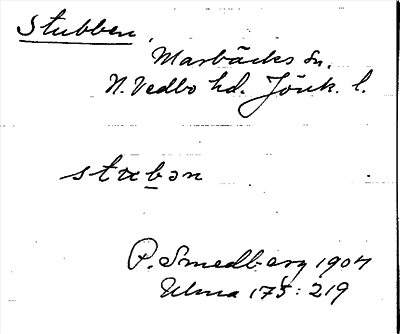 Stubben,
Marbäcks sn.
N. Vedbo hd. Jönk. l.
stubən
P. Smedberg 1907
Ulma 175:219